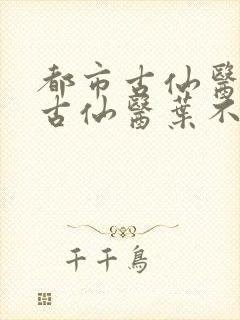 都市古仙醫
古仙醫葉不
千千鳥